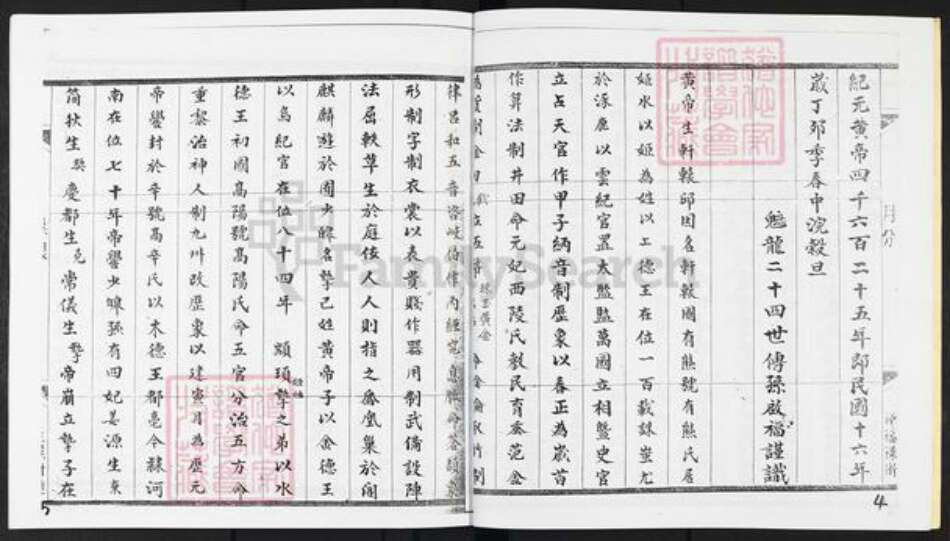 紀元黃帝四千六百二十五年即民國十六年
歲丁卯季春中浣穀旦
魁龍二十四世傳孫啟福謹識
黃帝生軒轅邱因名軒轅國有熊號有熊氏居
姬水以姬為姓以土德王在位一百載誅蚩尤
於涿鹿以雲紀官置大監監萬國立相暨史官
立占天官作甲子納音制歷象以春正為歲首
作算法制井田命元妃西陵氏教民育蚕范金
律呂和五音咨岐伯作內經
形制字制衣裳以表貴賤作器用制武備設陣
法屈軼草生於庭佞人人則指之鳳凰巢於閣
麒麟遊於囿少皞名摯己姓黃帝子以金德王
以鳥紀官在位八十四年 顓頊摯之弟以水
德王初國高陽號高陽氏命五官分治五方命
重黎治神人制九州改歷象以建寅月為歷元
帝嚳封於辛號高辛氏以木德王都亳今隸河
南在位七十年帝嚳少皞孫有四妃姜源生棄
簡狄生契慶都生堯常儀生摯帝崩立摯子在
4
5
FamilySearch